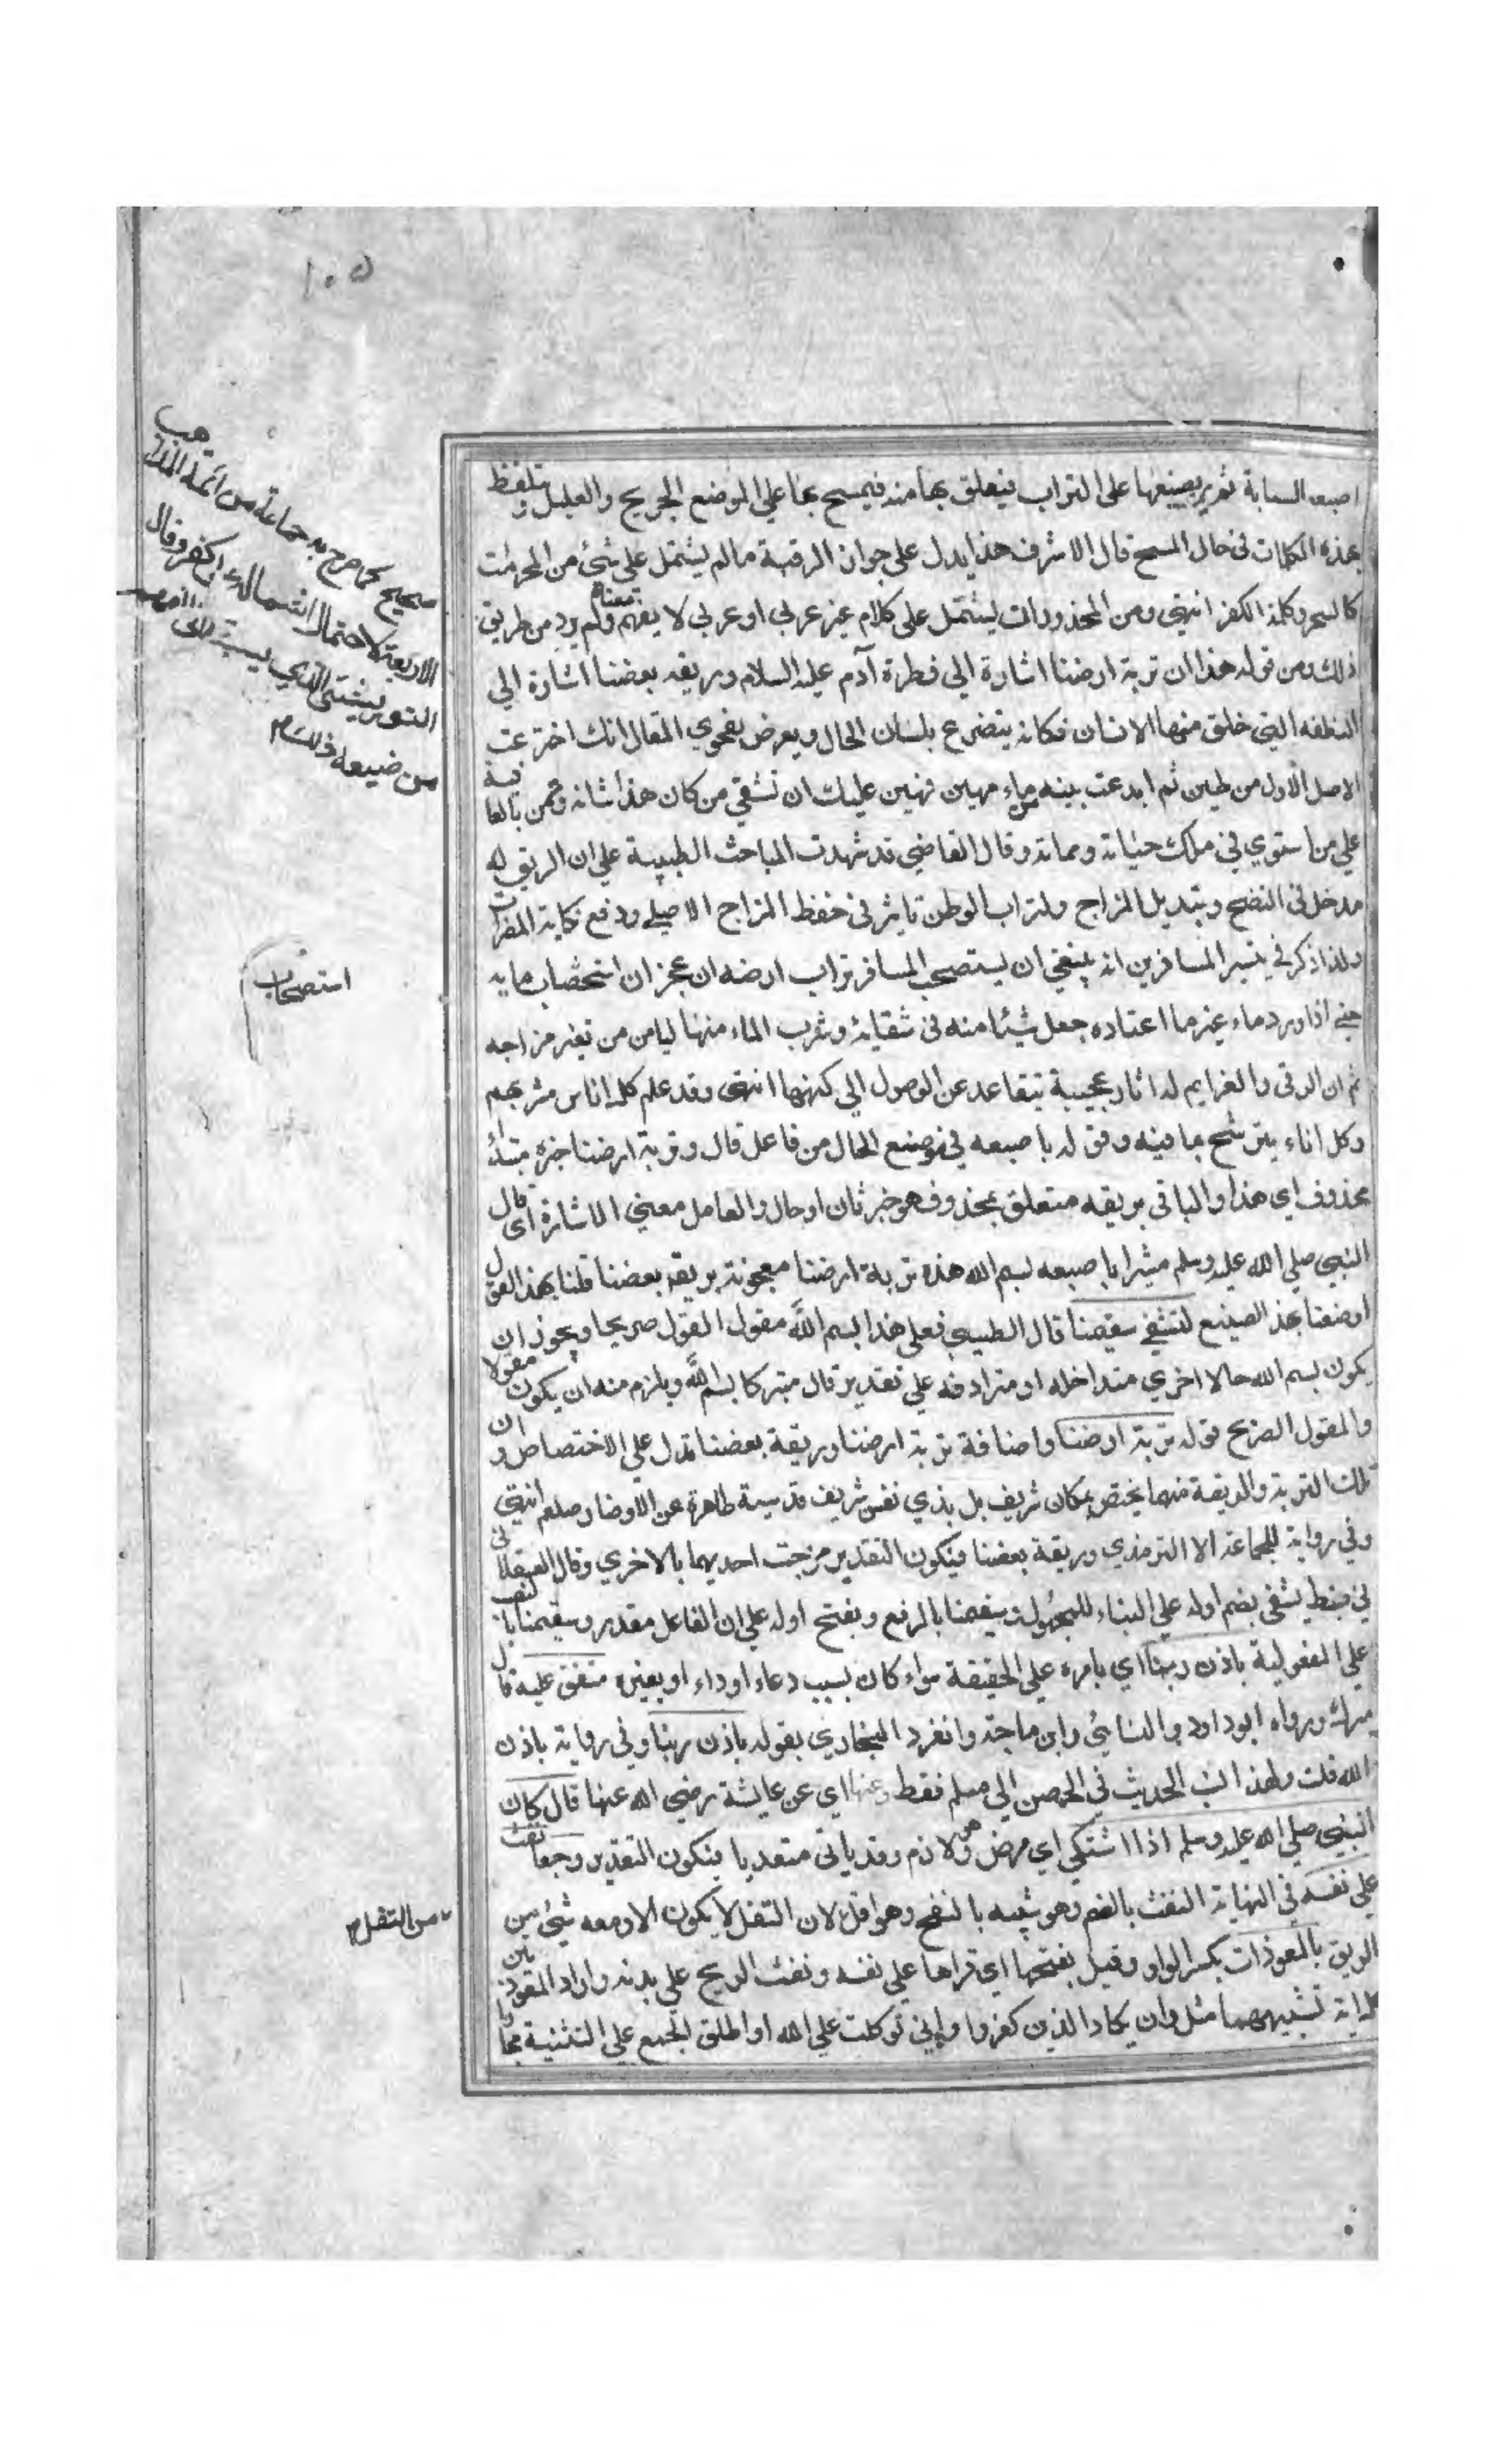 ١٠٥
اصبعه السبابة ثم يضعها على التراب فيتعلق بها منه فيمسح بها على الموضع الجريح والعليل ويتلفظ
بهذه الكلمات في حال المسح قال الاشرف هذا يدل على جواز الرقية ما لم يشتمل على شئ من المحرمات
كالسحر وكلمة الكفر انتهى ومن المحذورات ليشتمل على كلام غير عربي او عربي لا يفهم معناه ولم يرد من طريق
صحيح كما صرح به جماعة من ائمة المذاهب
الاربعة لاحتمال اشتماله على كفر وقال
التوربشتي الذي يسبق الى الفهم
من صنيعه
ذلك ومن قوله هذا ان تربة ارضنا اشارة الي فطرة آدم عليه السلام وريقه بعضنا اشارة الي
النطفه التي خلق منها الانسان فكانه يتضرع بلسان الحال ويعرض بفحوي المقال انك اخترعت
الاصل الاول من طين ثم ابدعت بنيه من ماء مهين فهين عليك ان تشفي من كان هذا شانه وتمن بالعافية
علي من استوي في ملكك حياته ومماته وقال القاضي قد شهدت المباحث الطبية علي ان الريق له
مدخل في النضج وتبديل المزاج ولتراب الوطن تاثير في حفظ المزاج الاصلي ودفع نكاية المضرات
ولذا ذكر في تيسر المسافرين انه ينبغي ان يستصحب المسافر تراب ارضه ان عجز ان استحضاب مايه
استصحاب
حتي اذا ورد ماء غير ما اعتاده جعل شيئا منه في سقايه وشرب الماء منها ليامن من تغير مزاجه
ثم ان الرقى والعزايم لها اثار عجيبة تتقاعد عن الوصول الي كنهها انتهى وقد علم كل اناس مشربهم
وكل اناء يترشح بما فيه وقوله باصبعه في موضع الحال من فاعل قال وتربة ارضنا خبر مبتدأ
محذوف اي هذا والباقي بريقه متعلق بمحذوف هو خبر ثان او حال والعامل معني الاشارة اي قال
النبي صلي الله عليه وسلم مشيرا باصبعه بسم الله هذه تربة ارضنا معجونة بريقه بعضنا قلنا بهذا القول
او صنعنا بهذا الصنيع لتشفي سقيمنا قال الطيبي فعلي هذا بسم الله مقول القول صريحا ويجوز ان
يكون بسم الله حالا اخري متداخله او مترادفه علي تقدير قال متبركا بسم الله ويلزم منه ان يكون مقولا
والمقول الصريح قوله تربة ارضنا واضافة تربة ارضنا وريقة بعضنا تدل علي الاختصاص وان
تلك التربة والريقة منهما يختص بمكان شريف بل بذي نفس شريف قدسية طاهرة عن الاوضار وصلعم انتهي
وفي رواية للجماعة الا الترمذي وريقة بعضنا فيكون التقدير مزجت احديهما بالاخري وقال العسقلاني
في ضبط يشفى بضم اوله علي البناء للمجهول سقيمنا بالرفع وبفتح اوله علي ان الفاعل مقدر وسقيمنا بالنصب
علي المفعولية باذن ربنا اي بامره علي الحقيقة سواء كان بسبب دعاء او داء او بغيره متفق عليه قال
ميرك ورواه ابو داود والنسايي وابن ماجة وانفرد البخاري بقوله باذن ربنا وفي رواية باذن
الله قلت ولهذا الحديث في الحصن الي مسلم فقط وعنها اي عن عايشة رضي الله عنها قال كان
النبي صلي الله عليه وسلم اذا اشتكي اي مرض وهو لازم وقد ياتي متعديا فيكون التقدير وجعا نفث
علي نفسه في النهاية النفث بالفم وهو شبيه بالنفخ وهو اقل لان التفل لا يكون الا ومعه شئ من
من التفل
الريق بالمعوذات بكسر الواو وقيل بفتحها اي قراها علي نفسه ونفث الريح علي بدنه واراد المعوذتين
كل اية تشبههما مثل وان يكاد الذين كفروا وإني توكلت علي الله او اطلق الجمع علي التثنية مجازا